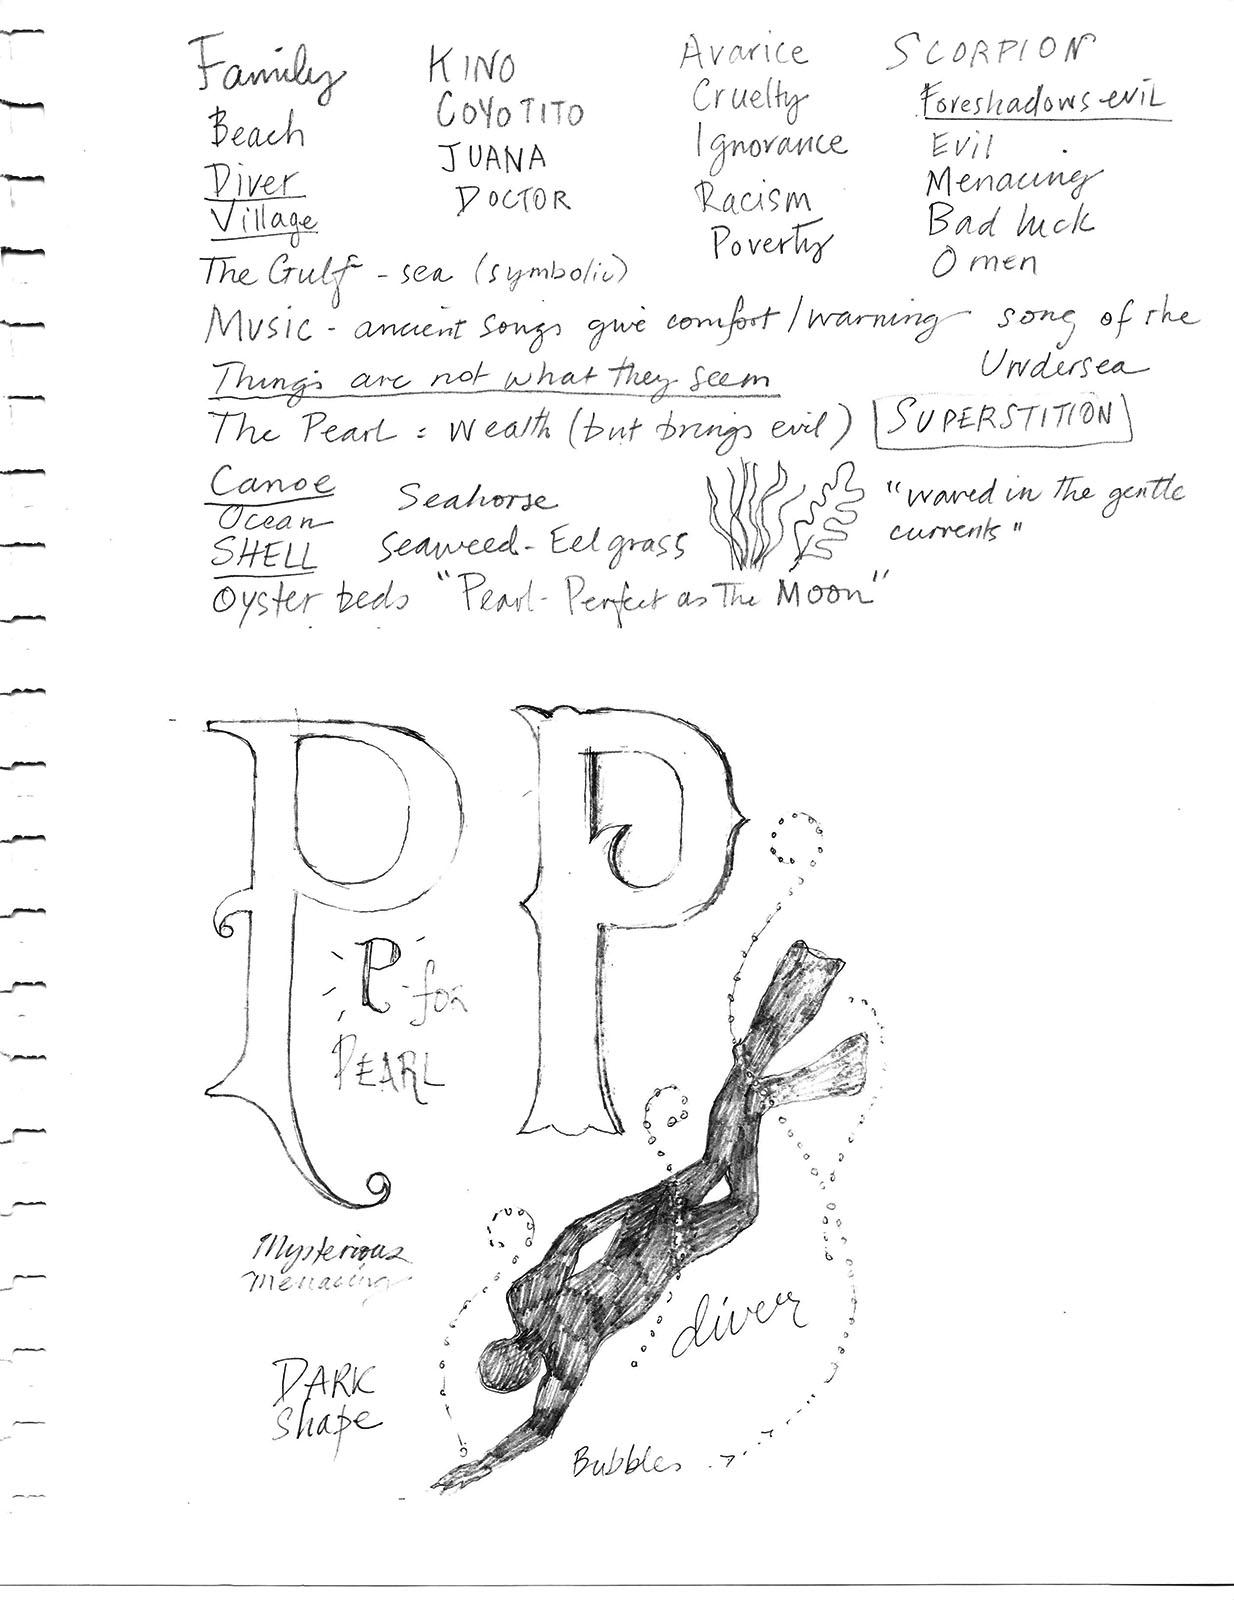 Family
Beach
Diver
Village
KINO
COYOTITO
JUANA
DOCTOR
Avarice
Cruelty
Ignorance
Racism
Poverty
SCORPION
Foreshadows evil
Evil
Menacing
Bad luck
Omen
The Gulf - sea (symbolic)
Music - ancient songs give comfort / warning song of the
Undersea
Things are not what they seem
The Pearl = wealth (but brings evil) SUPERSTITION
Canoe
Ocean
SHELL
Seahorse
Seaweed - Eel grass
"waved in the gentle
currents"
Oyster beds "Pearl - Perfect as The Moon"
P P
P for
PEARL
Mysterious
menacing
DARK
Shape
diver
Bubbles